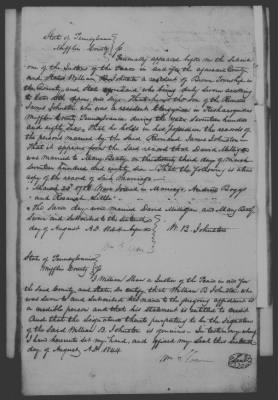 State of Pennsylvania
Mifflin County Ss
Personally appeared before me the subscri
ber one of the Justices of the Peace in and for the aforesaid County
and State William B Johnston a resident of Brown Township in
the County and State aforesaid who being duly sworn according
to law doth depose and say That he is the Son of the Reverend
James Johnston who was a resident Clergyman in
Mifflin County Pennsylvania during the year Seventeen hundred
and eighty six, that he holds in his possession the records of
the persons married by the said Reverend James Johnston
That it appears from the said record that David Milligan
was married to Mary Beaty on the twenty third day of March
Seventeen hundred and eighty six. That the following is a true
copy of the record of such Marriage
March 23d 1786 Were Joined in Marriage Andrew Boggs
and Hannah Little
The same day were married David Milligan and Mary Beaty
Sworn and Subscribed to the sixteenth
day of August A.D. 1844 before me
W. B. Johnston
State of Pennsylvania
Mifflin County Ss
I William Shaw a Justice of the Peace in and for
the said County and State do certify that William B Johnston who
was sworn to and subscribed his name to the foregoing affidavit is
a credible person and that his statement is entitled to credit
And that the signature thereto purporting to be the signature
of the said William B. Johnston is genuine. In testimony whereof
I have hereunto set my hand, and affixed my seal this sixteenth
day of August A.D. 1844
Wm Shaw